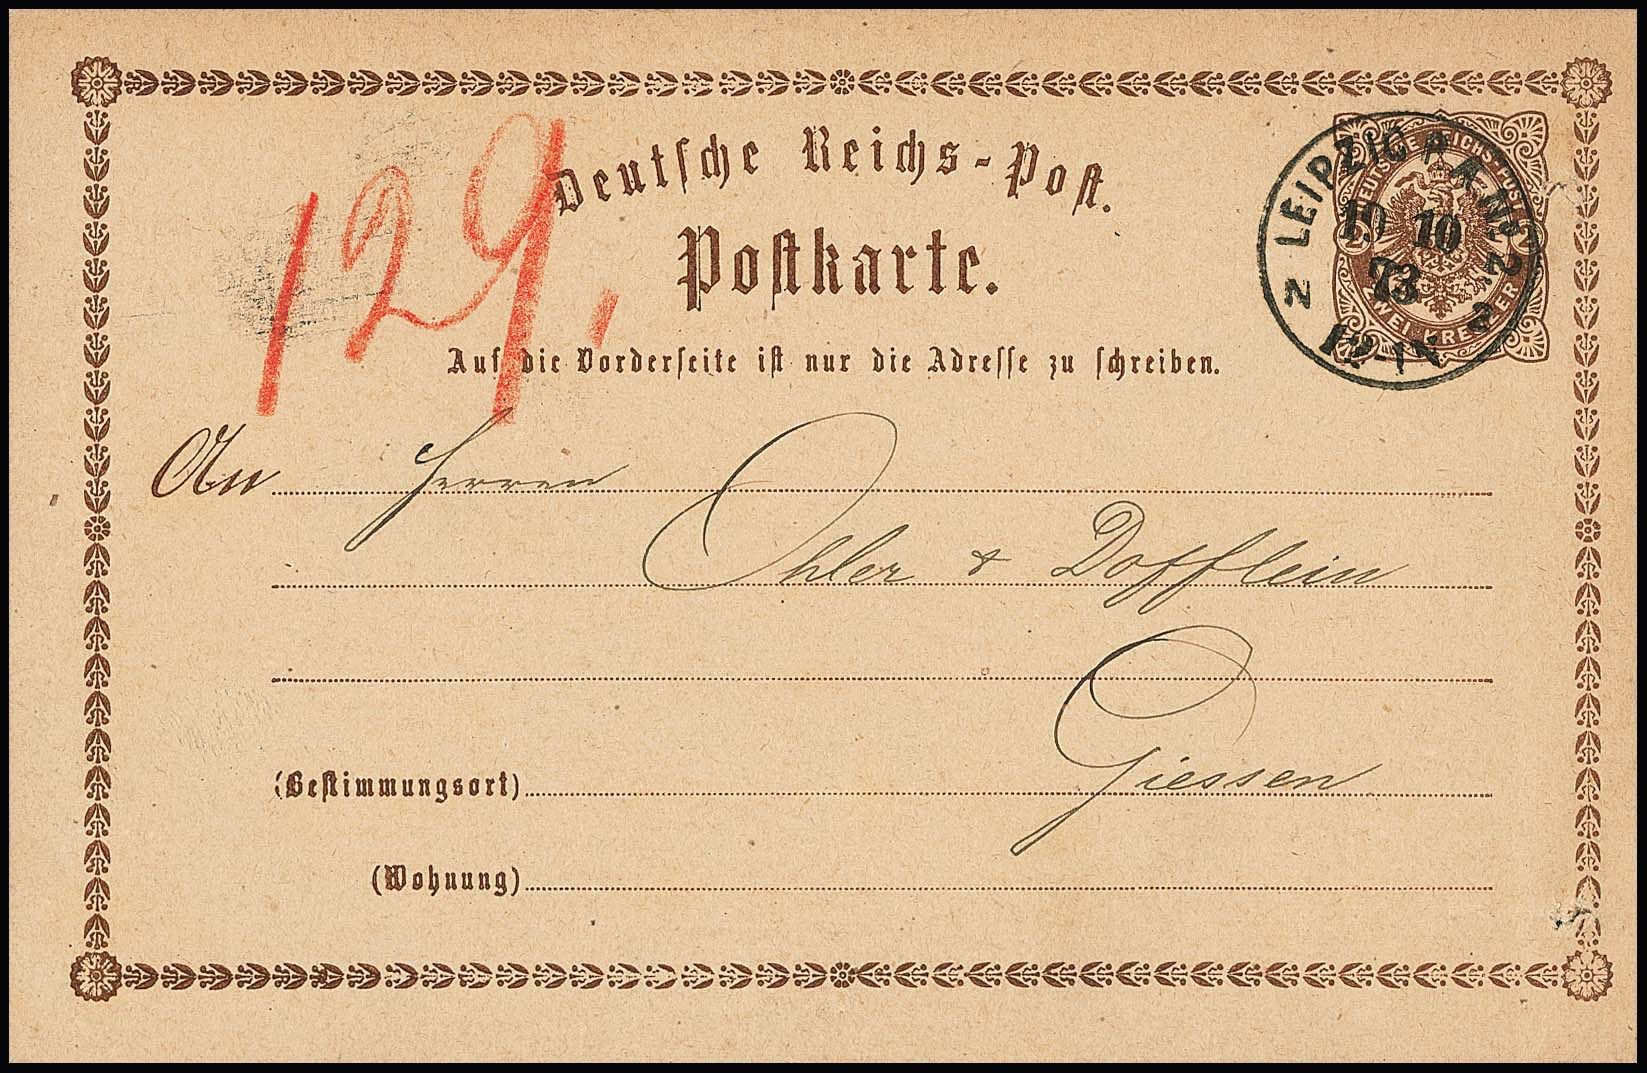 129.
Deutsche Reichs-Post.
Postkarte.
Auf die Vorderseite ist nur die Adresse zu schreiben.
DEUTSCHE REICHSPOST
2 2
ZWEI KREUZER
LEIPZIG P. A. No 2.
19 10
73
12-1N
Z 2
An Herren
Ohler & Dofflein
(Bestimmungsort) Giessen
(Wohnung)